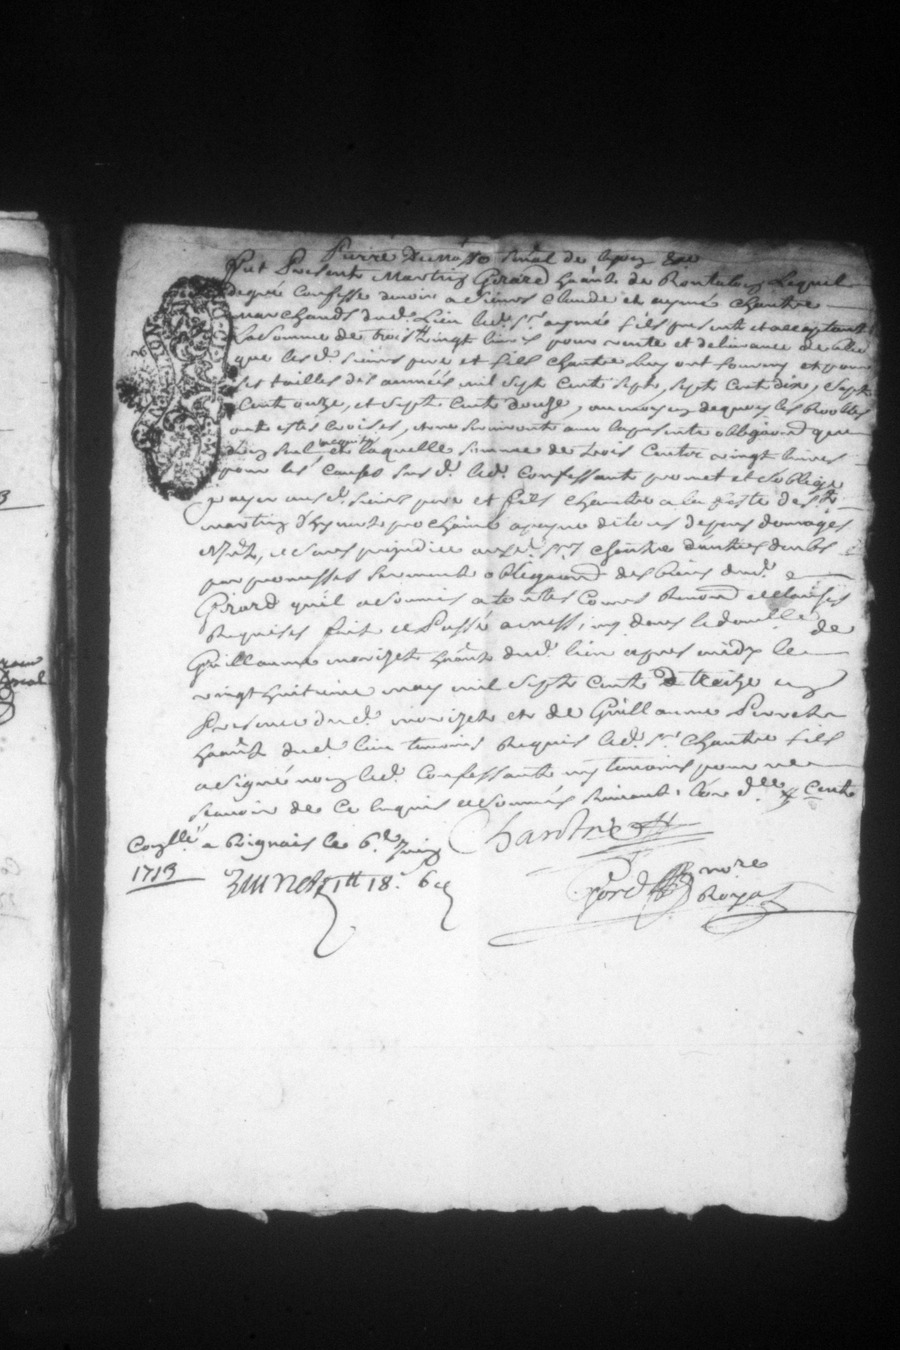 Pierre
Fut Present Martin Girard hãnt de Lequel
degré Confesse devoir a Sieurs Claude et aymé Chantre
marchands dud. Lieu led. Sr. aymé fils present et acceptant
La Somme de trois vingt livres pour vente et delivrance de bled
que lesd. Sieurs pere et fils Chantre luy ont fourny et pour
ses tailles des années mil Sept Cent Sept, Sept Cent dix, Sept
Cent onze, et Sept Cent douze, au moyen dequoy les Roolles
ont estés croisés, et ne serviront avec la presente obligaõn que
d'un Seul acquity et laquelle Somme de trois Cents vingt livres
pour les Causes Susd. led. Confessant promet et Soblige
payer ausd. Sieurs pere et fils Chantre a la feste de St.
martin d'hyvert prochaine a peyne de tous depens domages
et sans prejudice ausd. Srs Chantre d'autres deubs
par promesses Serment obligaõn des biens dud.
Girard quil a Soumis a toutes Cours Renonõn et Clauses
Requises fait et Passé a dans le domille de
Guillaume morizet hãnt dud. lieu apres midy le
vingt huitieme may mil Sept Cent treize en
Presence dud. morizet et de Guillaume Perret
hãnt dud. lieu temoins Requis led. Sr. Chantre fils
a Signé non led. Confessant ny temoins pour ne
Scavoir de Ce Enquis et Sommés Cent
Chantre
Conllé a le 6e Juin
1713
18s 6d
nore
Royal